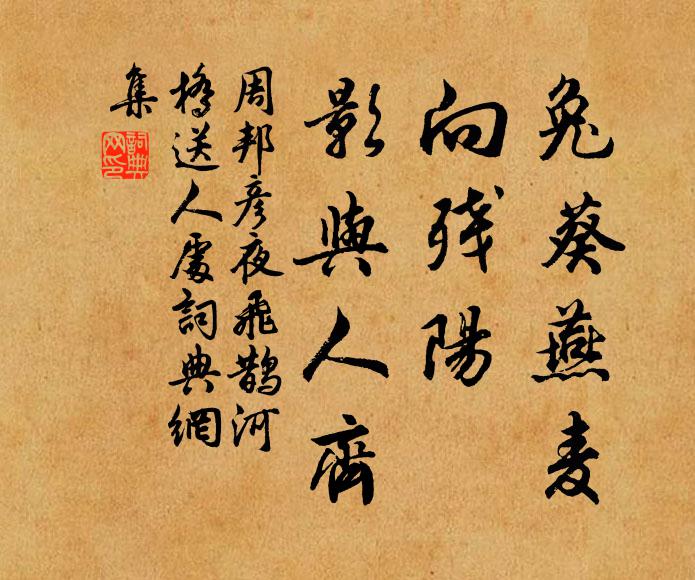 兔葵燕麦
向残陽
影與人齊
周邦彦夜飛鵲河
橋送人處詞典網
集
詞典
网印